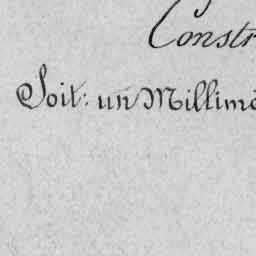 Constr
Soit: un Millimè